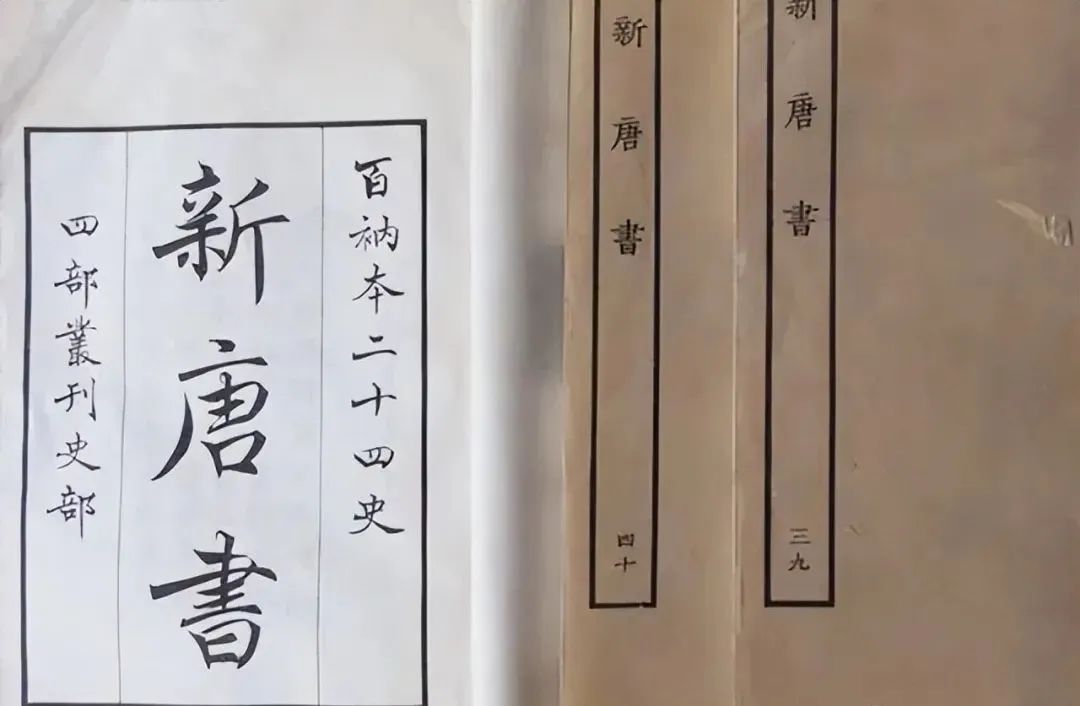 百衲本二十四史
新唐書
四部叢刊史部
新唐書
三九
新唐書
四十